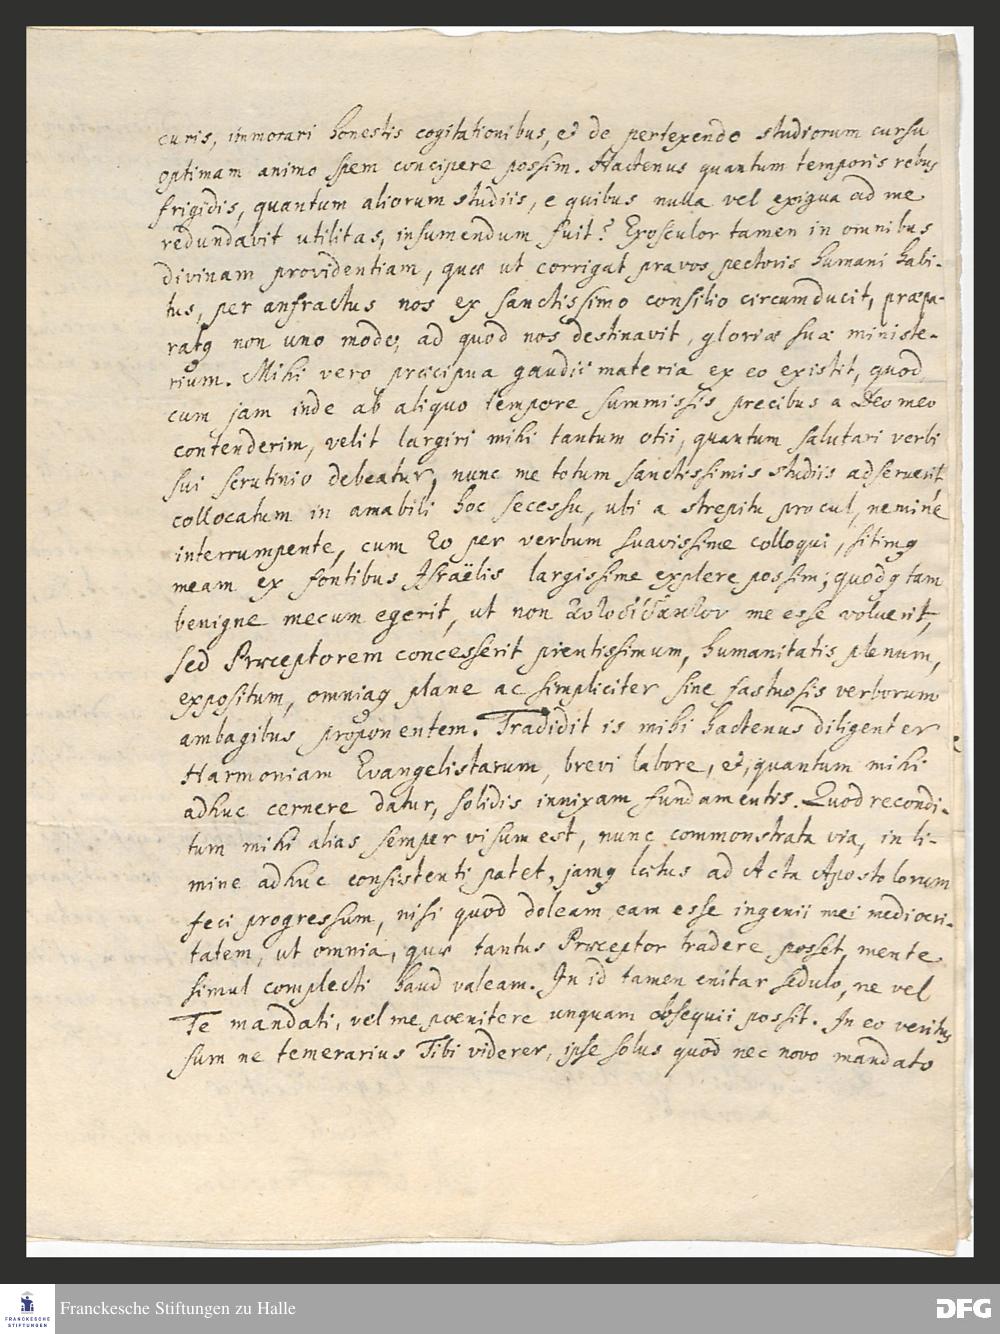 curis, immorari honestis cogitationibus, et de pertexendo studiorum cursu
optimam animo spem concipere possim. Hactenus quantum temporis rebus
frigidis, quantum aliorum studiis, e quibus nulla vel exigua ad me
redundavit utilitas, insumendum fuit? Exosculor tamen in omnibus
divinam providentiam, quæ ut corrigat pravos pectoris humani habi-
tus, per anfractus nos ex sanctissimo consilio circumducit, præpa-
ratq non uno modo, ad quod nos destinavit, gloriæ suæ ministe-
rium. Mihi vero præcipua gaudii materia ex eo existit, quod
cum jam inde ab aliquo tempore summissis precibus a Deo meo
contenderim, velit largiri mihi tantum otii, quantum salutari verbi
sui scrutinio debeatur, nunc me totum sanctissimis studiis adseruerit,
collocatum in amabili hoc secessu, ubi a strepitu procul, nemine
interrumpente, cum Eo per verbum suavissime colloqui, sitimq
meam ex fontibus Israëlis largissime explere possim; quodq tam
benigne mecum egerit, ut non me esse voluerit,
sed Præceptorem concesserit prientissimum, humanitatis plenum,
expositum, omniaq plane ac simpliciter sine fastuosis verborum
ambagibus proponentem. Tradidit is mihi hactenus diligenter
Harmoniam Evangelistarum, brevi labore, et, quantum mihi
adhuc cernere datur, solidis innixam fundamentis. Quod recondi-
tum mihi alias semper visum est, nunc commonstrata via, in li-
mine adhuc consistenti patet, jamq lætus ad Acta Apostolorum
feci progressum, nisi quod doleam eam esse ingenii mei mediocri-
tatem, ut omnia, quæ tantus Præceptor tradere posset, mente
simul complecti haud valeam. In id tamen enitar sedulo, ne vel
Te mandati, vel me poenitere unquam obsequii possit. In eo veritus
sum ne temerarius Tibi viderer, ipse solus quod nec novo mandato
FRANCKESCHE
STIFTUNGEN
Franckesche Stiftungen zu Halle
DFG